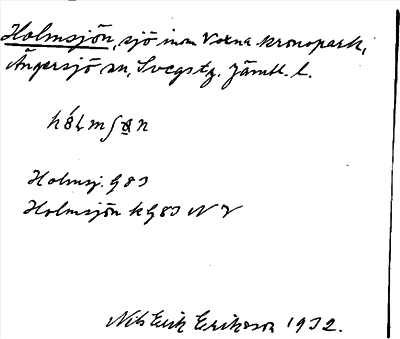 Holmsjön, sjö inom Voxna kronopark,
Ängersjö sn, Svegs tg. Jämtl. l.
Holmsj. G 83
Holmsjön k G 83 N V
Nils Erik Eriksson 1932.